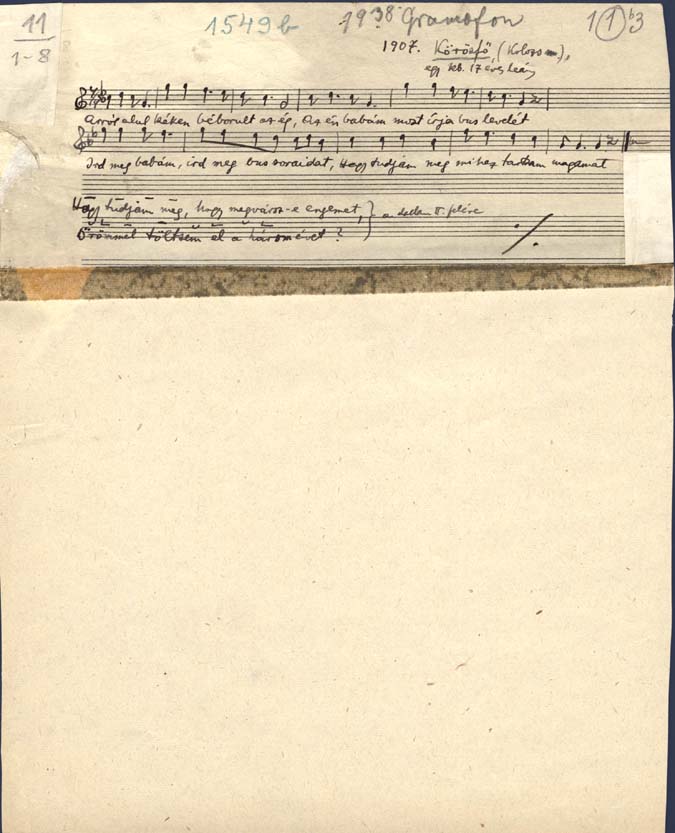 11
1-8
1549b
1938 Gramofon
1 1 b3
1907. Körösfő, (Kolozs m),
egy kb. 17 éves leány
Arról alul kéken béborult az ég, Az én babám most írja bus levelét
Ird meg babám, ird meg bus soraidat, Hogy tudjam meg mihez tartsam magamat
Hogy tudjam meg, hogy megvársz-e engemet,
Örömmel töltsem el a három évet?
a dallam II. felére